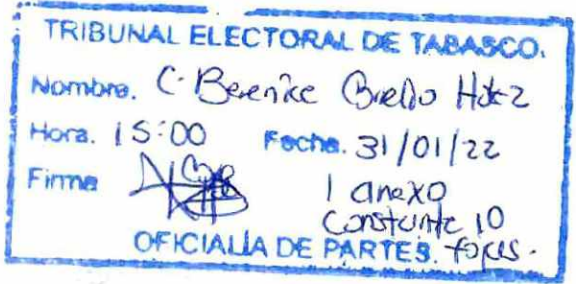 TRIBUNAL ELECTORAL DE TABASCO.
Nombre. C. Berenice
Hora. 15:00 Fecha. 31/01/22
Firma
1 anexo
Constante 10
OFICIALÍA DE PARTES. fojas.